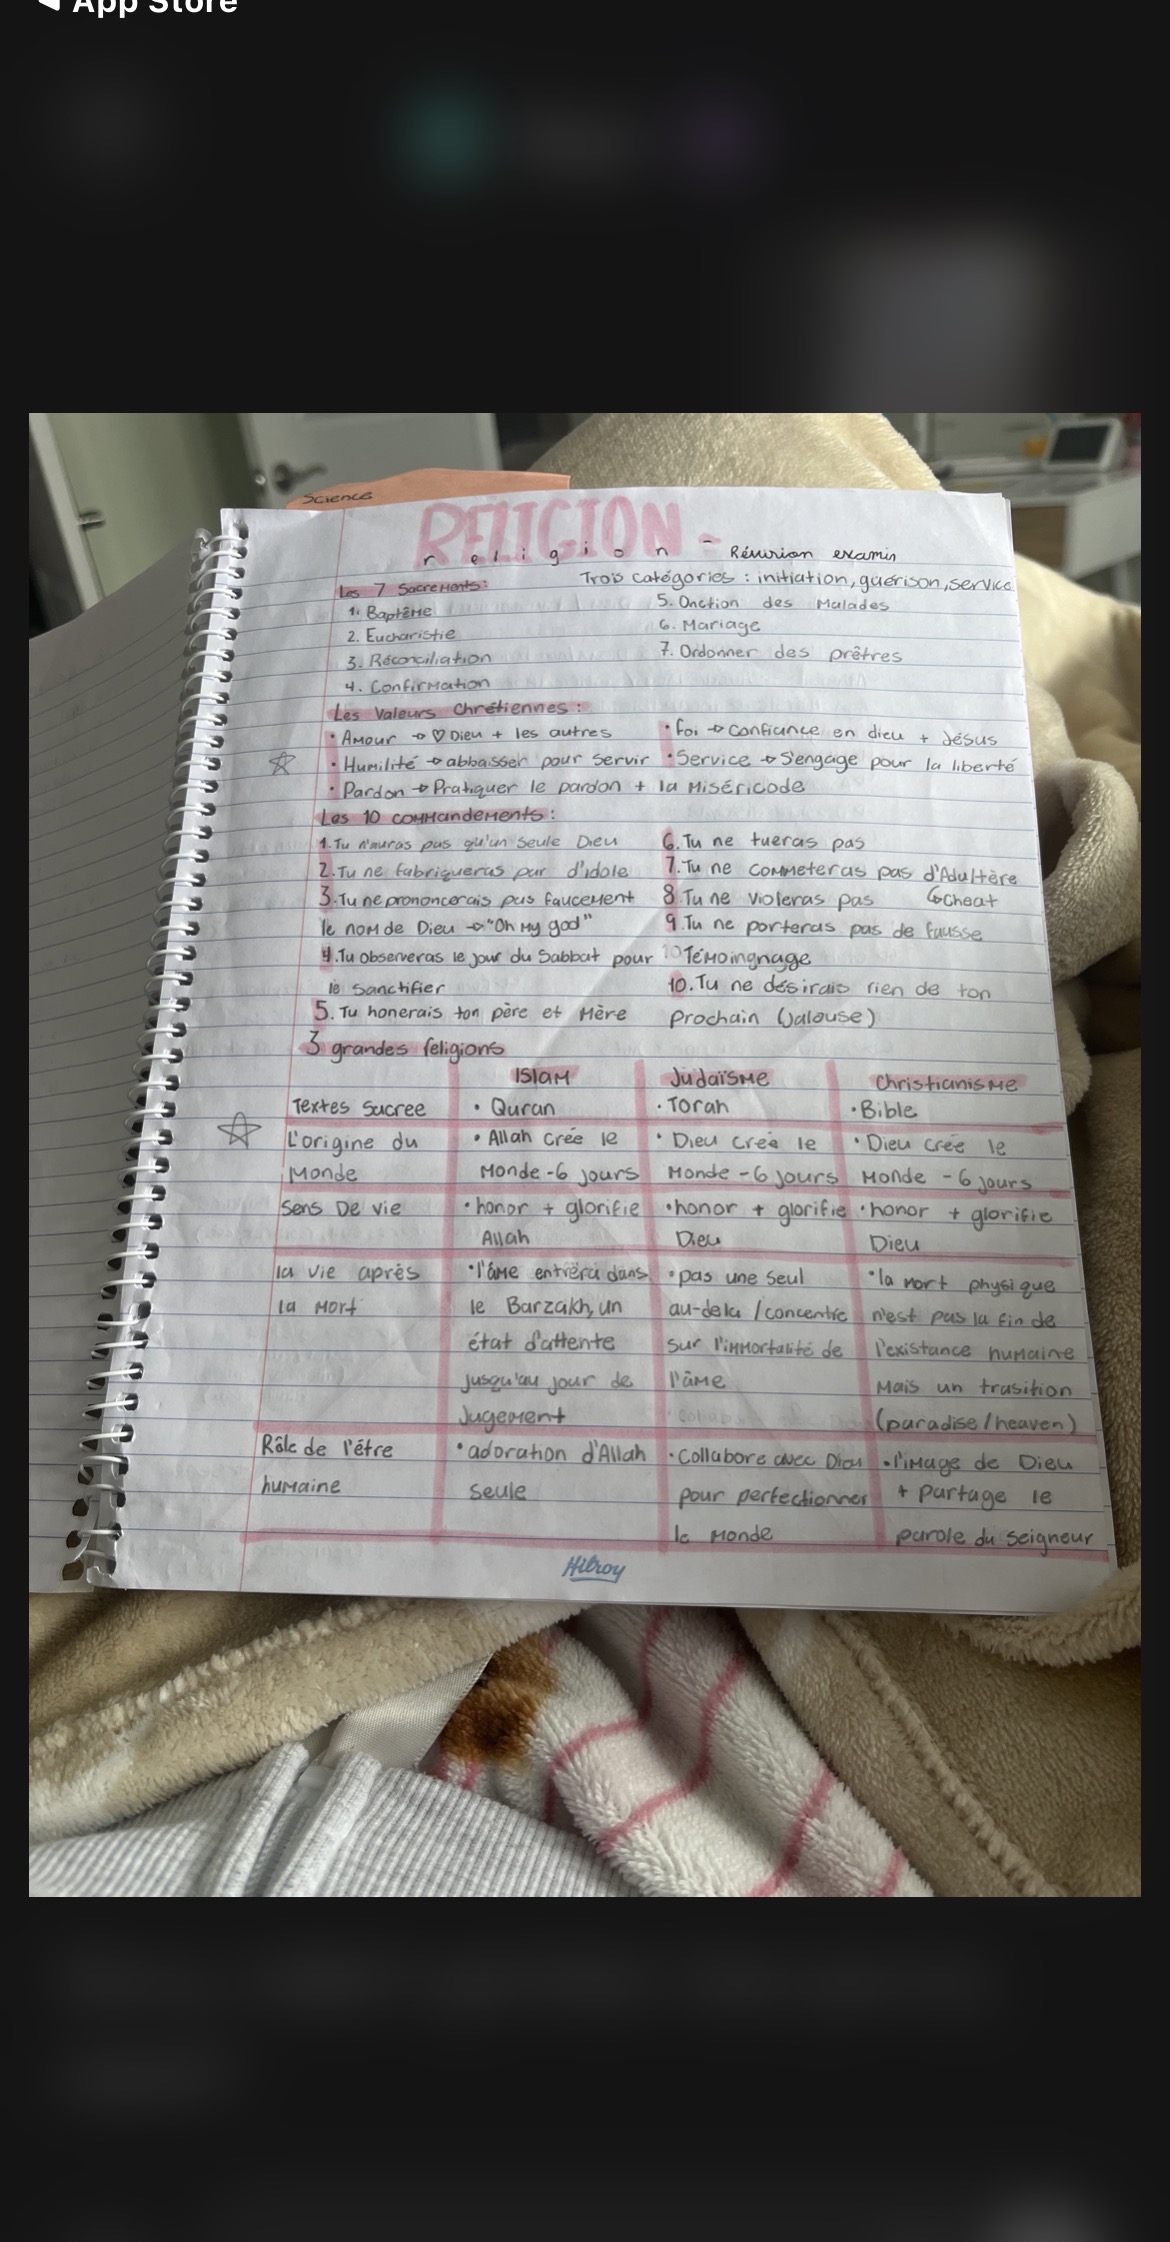 App Store
Science
RELIGION -
religion Réunion examin
Les 7 Sacrements: Trois catégories : initiation, guérison, service
1. Baptême 5. Onction des Malades
2. Eucharistie 6. Mariage
3. Réconciliation 7. Ordonner des prêtres
4. Confirmation
Les Valeurs Chrétiennes :
• Amour → ♡ Dieu + les autres • foi → Confiance en dieu + Jésus
• Humilité → abbaisser pour servir • Service → S'engage pour la liberté
• Pardon → Pratiquer le pardon + la Miséricode
Les 10 commandements :
1. Tu n'auras pas qu'un seule Dieu 6. Tu ne tueras pas
2. Tu ne fabriqueras par d'idole 7. Tu ne commeteras pas d'Adultère
3. Tu ne prononcerais pas faucement 8. Tu ne violeras pas ↳ Cheat
le nom de Dieu → "Oh My god" 9. Tu ne porteras pas de fausse
4. Tu observeras le jour du Sabbat pour 10 Témoingnage
le Sanctifier 10. Tu ne désirais rien de ton
5. Tu honerais ton père et Mère Prochain (Jalouse)
3 grandes religions
Islam Judaïsme Christianisme
Textes Sucree • Quran • Torah • Bible
L'origine du • Allah crée le • Dieu crée le • Dieu crée le
Monde Monde - 6 jours Monde - 6 jours Monde - 6 jours
Sens De vie • honor + glorifie • honor + glorifie • honor + glorifie
Allah Dieu Dieu
la vie après • l'âme entrera dans • pas une seul • la mort physique
la Mort le Barzakh, un au-dela / concentre n'est pas la fin de
état d'attente sur l'immortalité de l'existance humaine
jusqu'au jour de l'âme Mais un trasition
Jugement (paradise/heaven)
Rôle de l'être • adoration d'Allah • Collabore avec Dieu • l'image de Dieu
humaine seule pour perfectionner + partage le
le Monde parole du seigneur
Hilroy